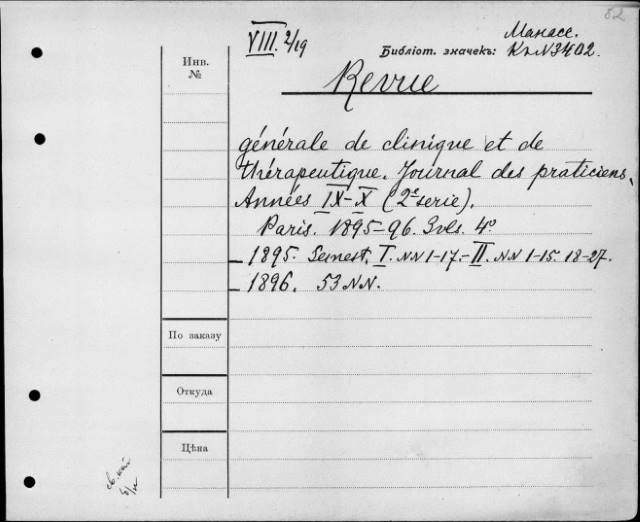 82
VIII. 2/19
Манасе.
Библіот. значекъ: К λ N 3402.
Инв. №
Revue
générale de clinique et de
thérapeutique. Journal des praticiens.
Années IX-X (2e serie).
Paris. 1895-96. 3 vls. 4º
1895. Semest. I. NN 1-17.- II. NN 1-15. 18-27.
1896. 53 NN.
По заказу
Откуда
Цѣна